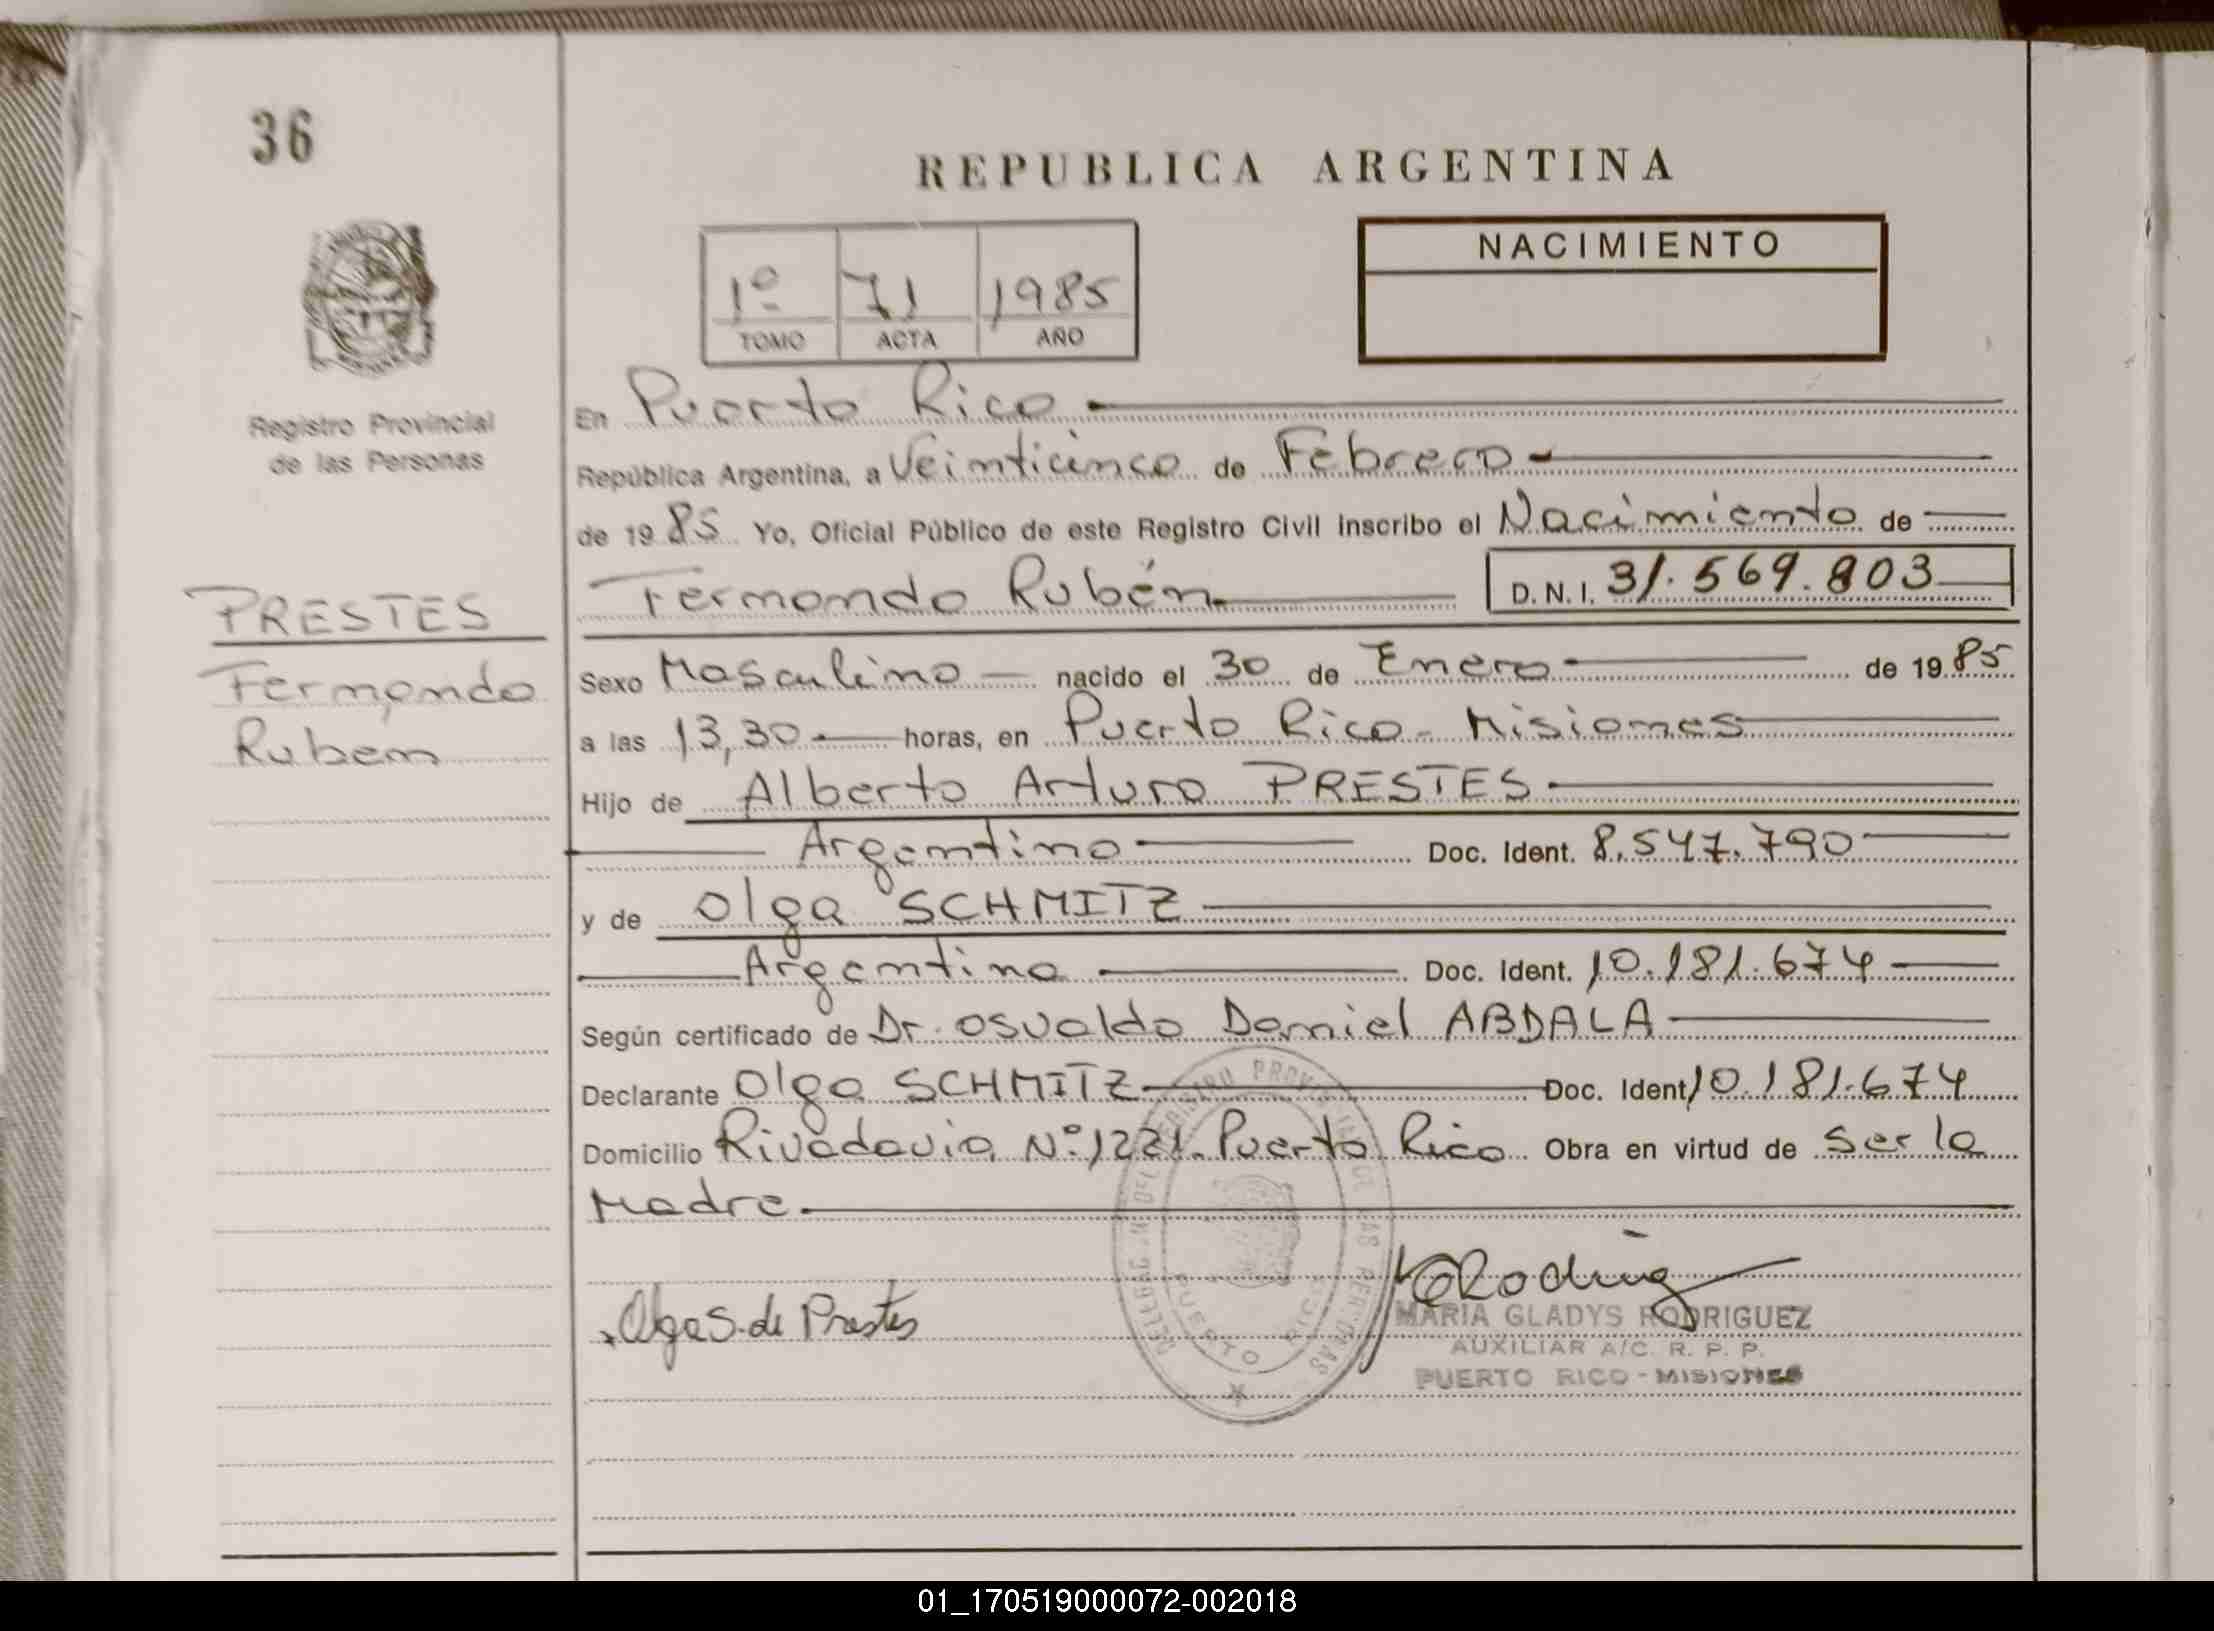 36
REPUBLICA ARGENTINA
1º 71 1985
TOMO ACTA AÑO
NACIMIENTO
Registro Provincial
de las Personas
PRESTES
Fernando
Ruben
En Puerto Rico
República Argentina, a Veinticinco de Febrero
de 1985 Yo, Oficial Público de este Registro Civil inscribo el Nacimiento de
Fernando Rubén D.N.I. 31.569.803
Sexo Masculino nacido el 30 de Enero de 1985
a las 13,30 horas, en Puerto Rico - Misiones
Hijo de Alberto Arturo PRESTES
Argentino Doc. Ident. 8.547.790
y de Olga SCHMITZ
Argentina Doc. Ident. 10.181.674
Según certificado de Dr. Osvaldo Daniel ABDALA
Declarante Olga SCHMITZ Doc. Ident 10.181.674
Domicilio Rivadavia Nº 1221. Puerto Rico Obra en virtud de ser la
Madre
Olga S. de Prestes
DELEGACION DEL REGISTRO PROVINCIAL DE LAS PERSONAS
PUERTO RICO
MARIA GLADYS RODRIGUEZ
AUXILIAR A/C. R. P. P.
PUERTO RICO - MISIONES
01_170519000072-002018